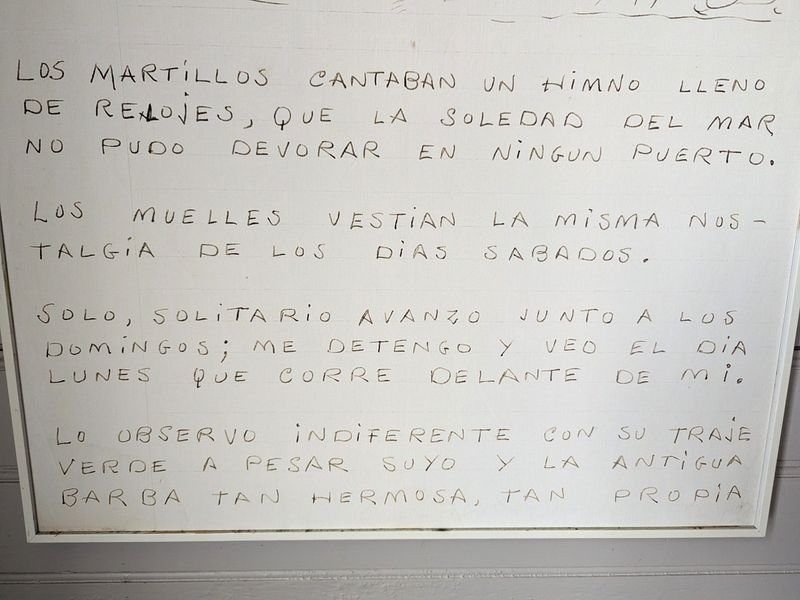 LOS MARTiLLOS CANTABAN UN HiMNO LLENO
DE RELOjES, QUE LA SOLEDAD DEL MAR
NO PUDO DEVORAR EN NiNGUN PUERTO.
LOS MUELLES VESTiAN LA MiSMA NOS-
TALGíA DE LOS DíAS SABADOS.
SOLO, SOLiTARiO AVANZO JUNTO A LOS
DOMiNGOS; ME DETENGO Y VEO EL DíA
LUNES QUE CORRE DELANTE DE Mi.
LO OBSERVO iNDiFERENTE CON SU TRAjE
VERDE A PESAR SUYO Y LA ANTiGUA
BARBA TAN HERMOSA, TAN PROPiA